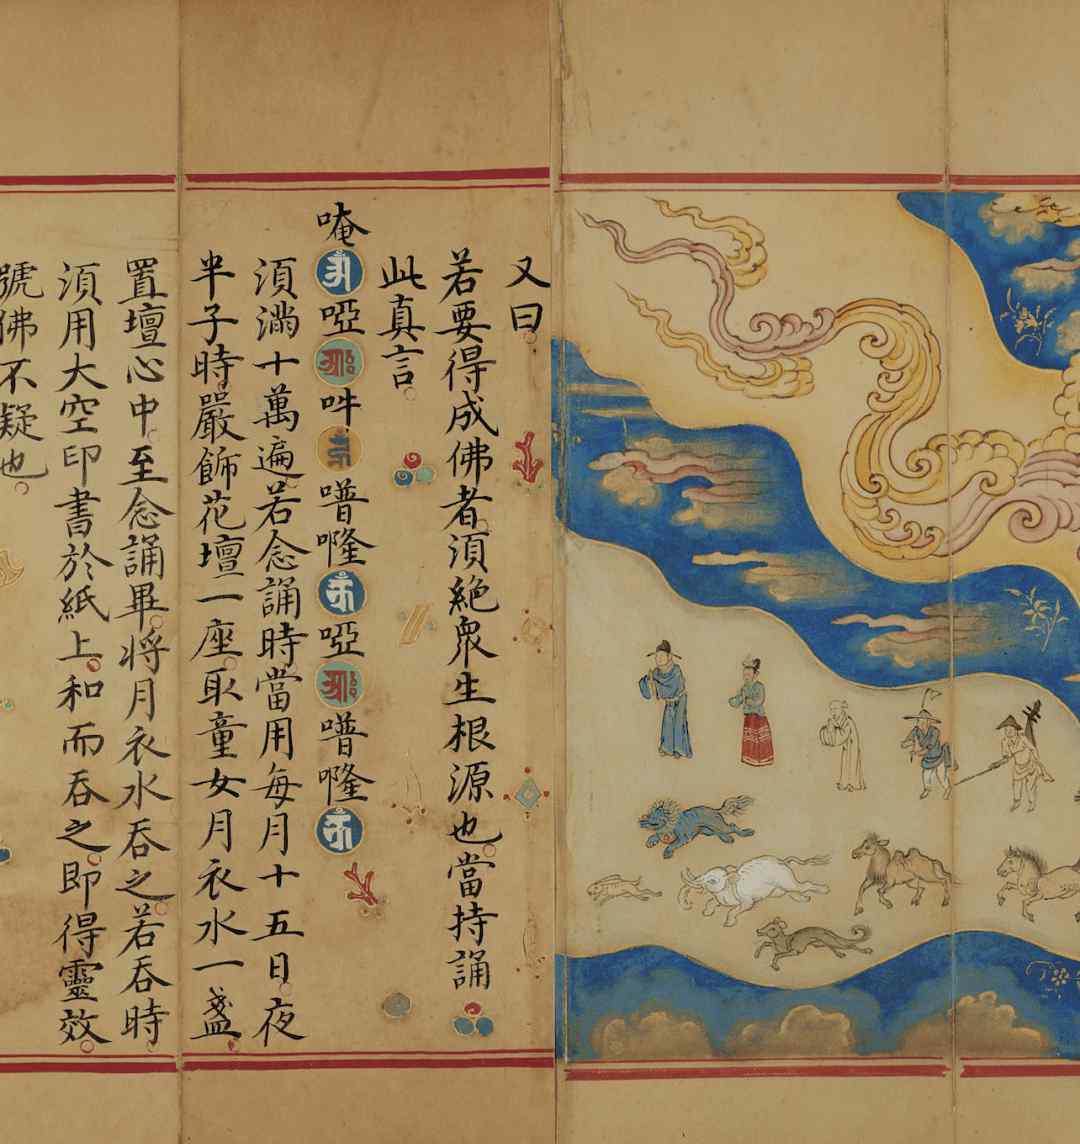 又曰
若要得成佛者須絕衆生根源也當持誦
此真言
唵啞吽啞
須滿十萬遍若念誦時當用每月十五日夜
半子時嚴飾花壇一座取童女月衣水一盞
置壇心中至念誦畢將月衣水吞之若吞時
須用大空印書於紙上和而吞之即得靈效
號佛不疑也